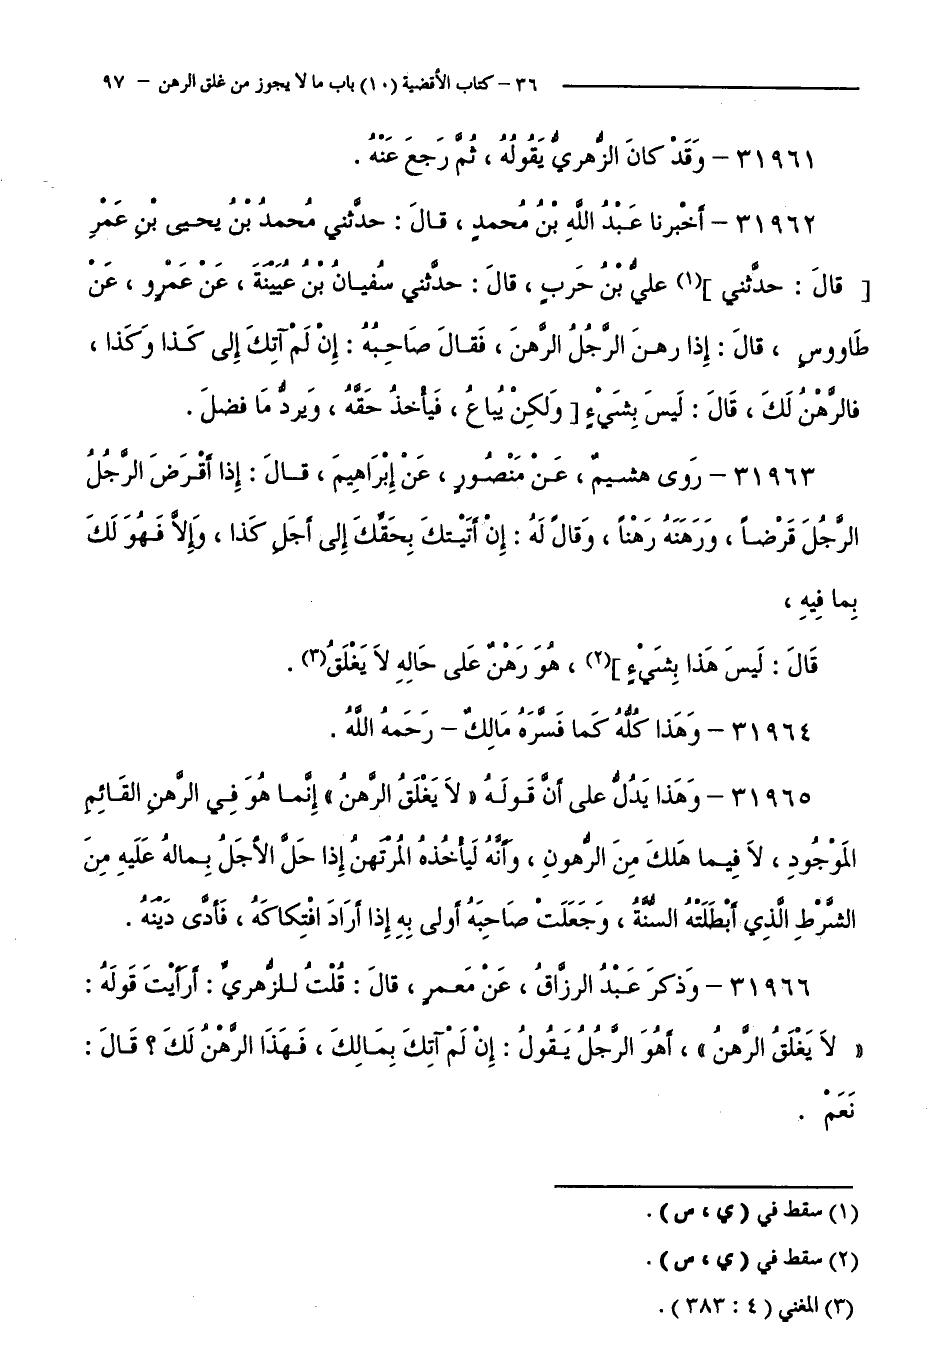 ٣٦ – كتاب الأقضية (١٠) باب ما لا يجوز من غلق الرهن – ٩٧
٣١٩٦١ – وَقَدْ كانَ الزُّهريُّ يَقُولُهُ ، ثُمَّ رَجعَ عَنْهُ .
٣١٩٦٢ – أخْبرنا عَبْدُ اللَّهِ بْنُ مُحمدٍ ، قالَ : حدثَّني مُحمدُ بْنُ يحيى بْنِ عَمْرِ
[ قالَ : حدثَّني ](١) عليُّ بْنُ حَربٍ ، قالَ : حدثَّني سُفيانُ بْنُ عُيَيْنَةَ ، عَنْ عَمْرٍو ، عَنْ
طَاووسٍ ، قالَ : إذا رهنَ الرَّجُلُ الرَّهنَ ، فَقالَ صَاحبُهُ : إنْ لَمْ آتِكَ إلى كَذا وكَذا ،
فالرَّهْنُ لَكَ ، قَالَ : لَيسَ بِشَيْءٍ [ ولَكِنْ يُباعُ ، فَيأخذُ حَقَّهُ ، ويَردُّ مَا فضلَ .
٣١٩٦٣ – رَوى هشيمٌ ، عَنْ مَنْصُورٍ ، عَنْ إبْرَاهِيمَ ، قالَ : إذا أقْرضَ الرَّجُلُ
الرَّجُلَ قَرْضاً ، ورَهَنَهُ رَهْناً ، وقَالَ لَهُ : إنْ أتَيْتكَ بِحَقِّكَ إلى أجَلِ كَذا ، وإلاَّ فَهُوَ لَكَ
بِما فِيهِ ،
قَالَ : لَيسَ هَذا بِشَيْءٍ ](٢) ، هُوَ رَهْنٌ عَلى حَالِهِ لاَ يَغْلَقُ(٣) .
٣١٩٦٤ – وَهَذا كُلُّهُ كَما فَسَّرَهُ مَالِكٌ – رَحمَهُ اللَّهُ .
٣١٩٦٥ – وَهَذا يَدُلُّ على أنَّ قَولَهُ « لاَ يَغْلَقُ الرَّهنُ » إنَّما هُوَ فِي الرَّهنِ القَائِمِ
المَوْجُودِ ، لاَ فِيما هَلكَ مِنَ الرُّهونِ ، وأنَّهُ لَيأخُذهُ المُرْتَهنُ إذا حَلَّ الأجَلُ بِمالهُ عَلَيهِ مِنَ
الشَّرْطِ الَّذي أبْطَلَتْهُ السنَّةُ ، وجَعَلَتْ صَاحبَهُ أولى بِهِ إذا أرَادَ افْتِكاكَهُ ، فَأدَّى دَيْنَهُ .
٣١٩٦٦ – وَذَكرَ عَبْدُ الرزَّاقُ ، عَنْ مَعمرٍ ، قالَ : قُلْتُ للزُّهريِّ : أرَأيْتَ قَولَهُ :
« لاَ يَغْلَقُ الرَّهنُ » ، أهُوَ الرَّجُلُ يَقُولُ : إنْ لَمْ آتِكَ بِمَالِكَ ، فَهَذَا الرَّهْنُ لَكَ ؟ قَالَ :
نَعَمْ .
(١) سقط في ( ي ، س ) .
(٢) سقط في ( ي ، س ) .
(٣) المغني ( ٤ : ٣٨٣ ) .